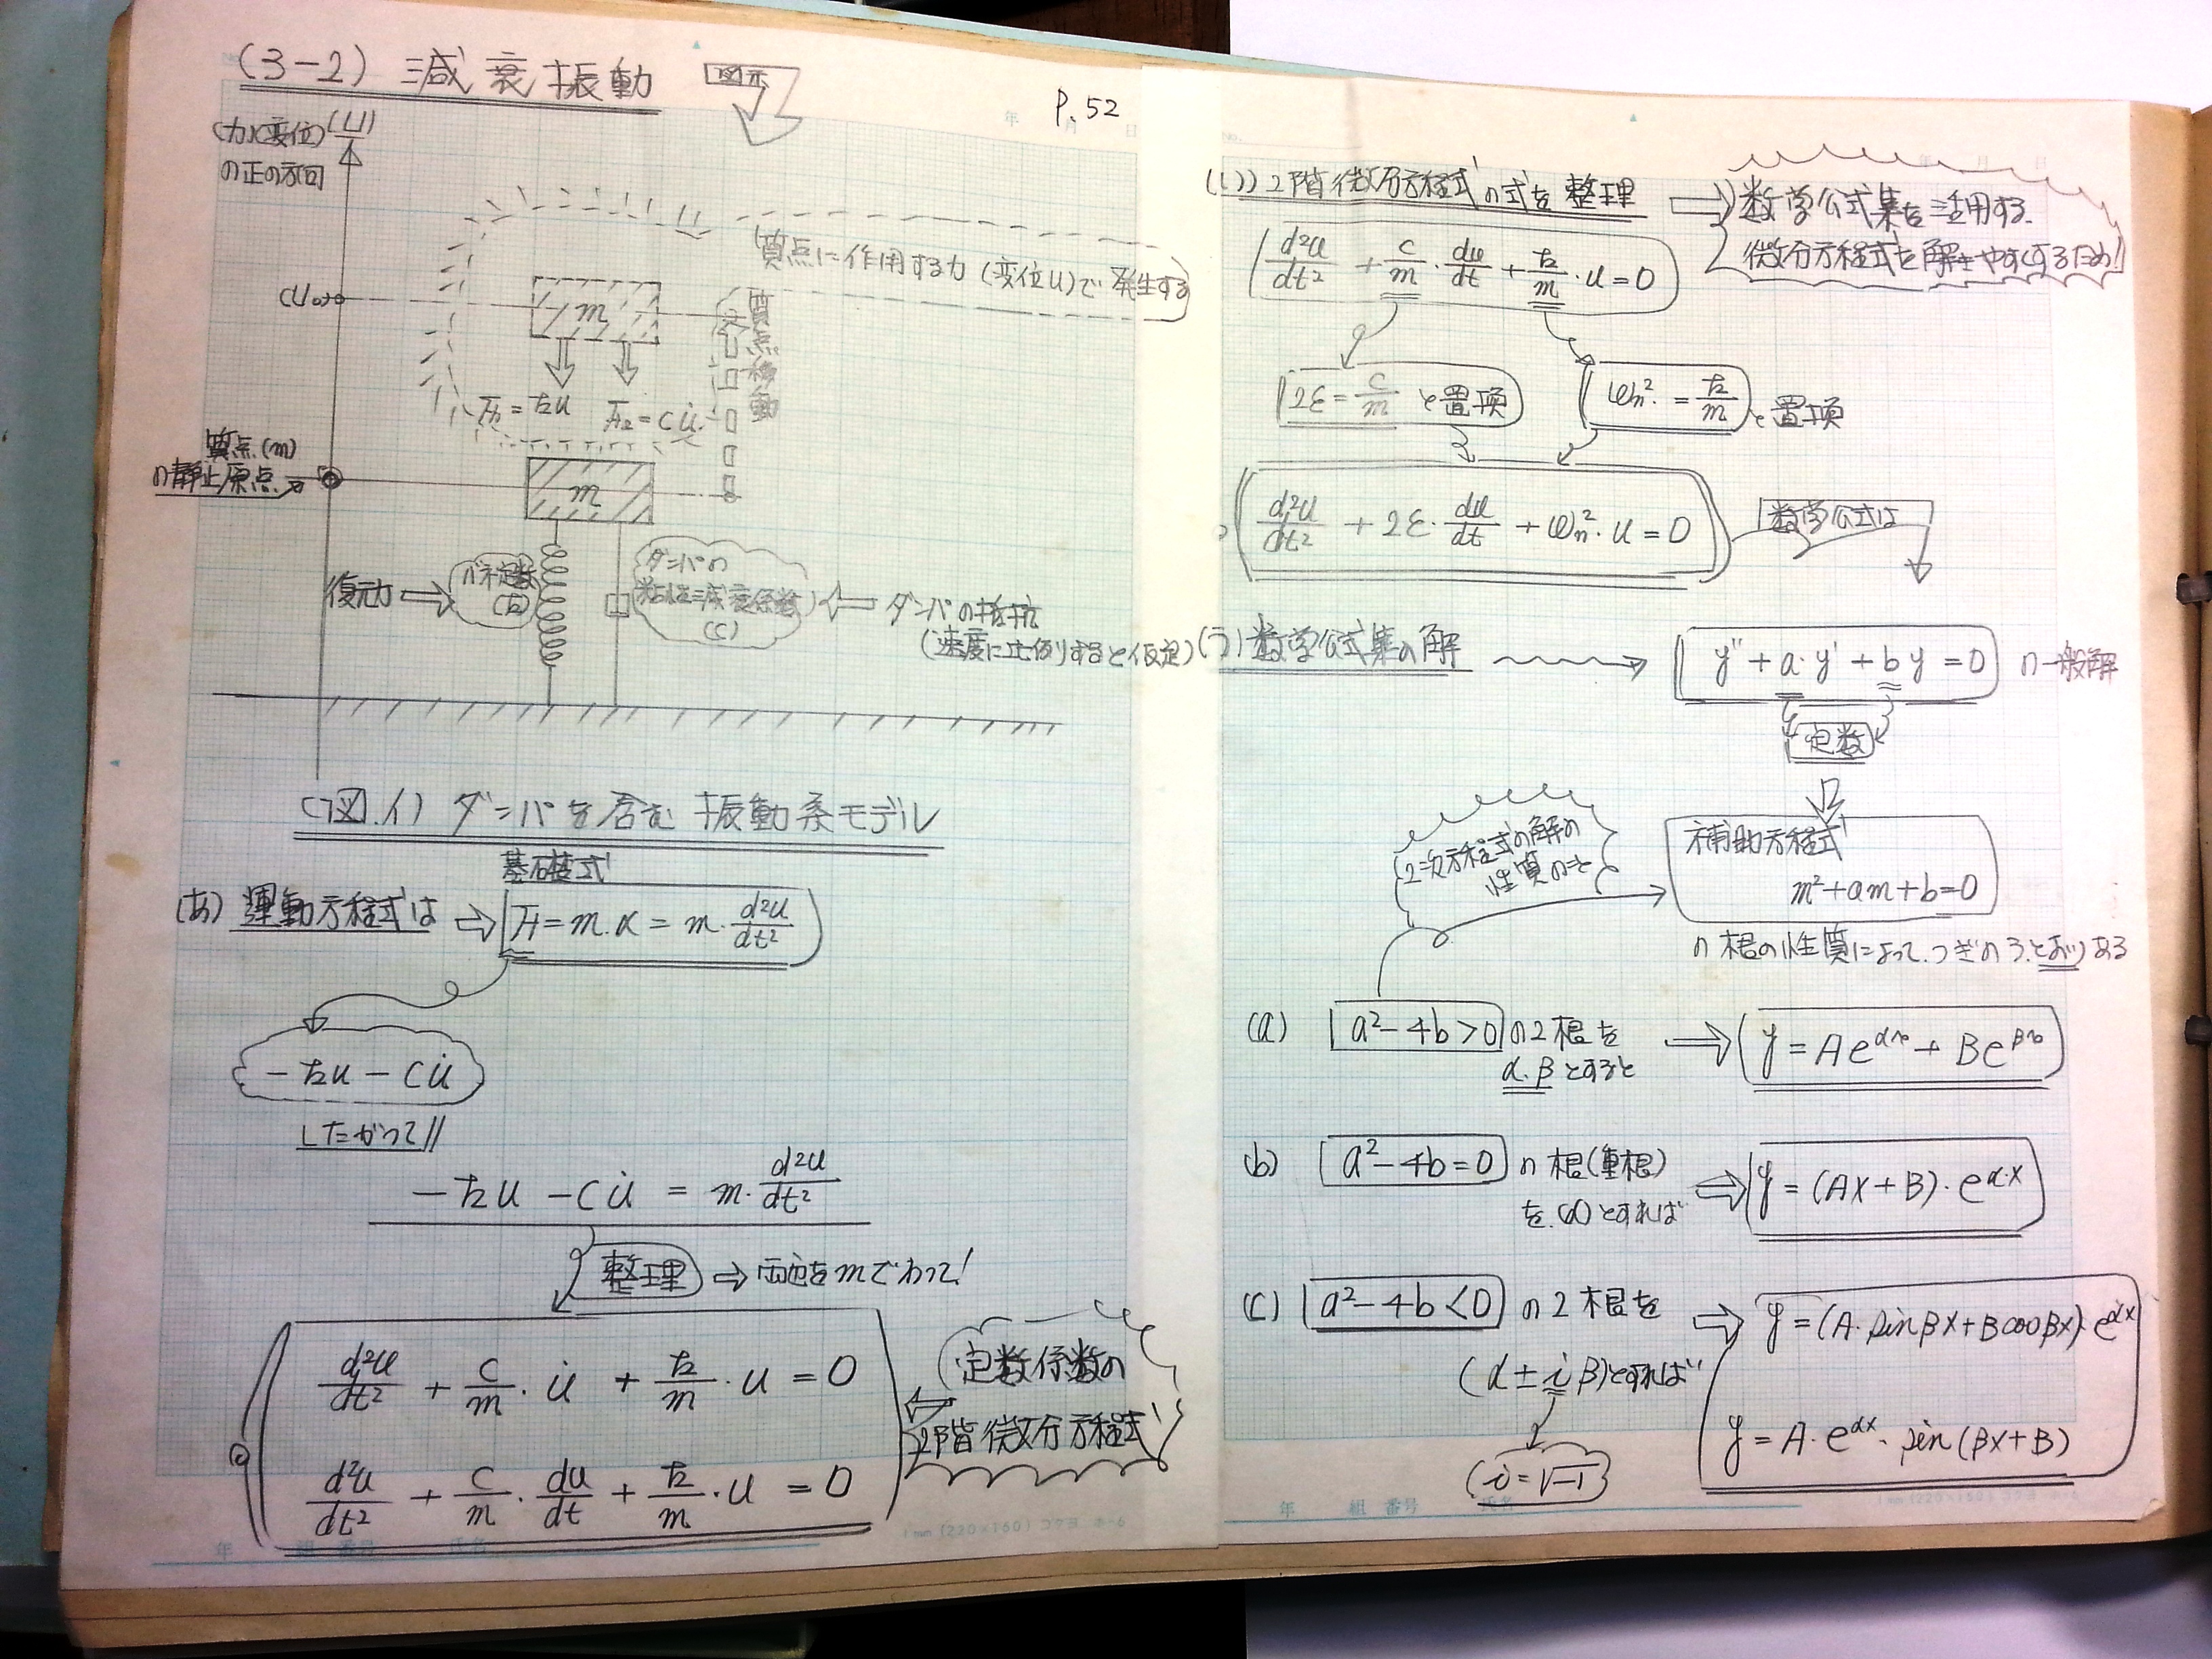 (3-2) 減衰振動
図示
P.52
年 月 日
(力)(変位)(U)
の正の方向
質点に作用する力(変位u)で発生する
(U0)
m
質点移動
F1=ku F2=cu̇
質点(m)
の静止原点
m
復元力
バネ定数
(k)
ダンパの
粘性減衰係数
(C)
ダンパの抵抗
(速度に比例すると仮定)
(図.イ) ダンパを含む振動系モデル
基礎式
(あ) 運動方程式は ⇒ F=m.α=m・d²u/dt²
-ku-cu̇
したがって//
-ku-cu̇=m・d²u/dt²
整理 ⇒ 両辺をmでわって!
d²u/dt²+c/m・u̇+k/m・u=0
d²u/dt²+c/m・du/dt+k/m・u=0
定数係数の
2階微分方程式
年 組 番号 氏名
1mm(220×160) コクヨ ホ-6
No.
年 月 日
(い) 2階微分方程式の式を整理 ⇒ 数学公式集を活用する.
微分方程式を解きやすくするため!
d²u/dt²+c/m・du/dt+k/m・u=0
2ε=c/m と置換
ωn²=k/m と置換
d²u/dt²+2ε・du/dt+ωn²・u=0
数学公式は
(う) 数学公式集の解
y''+a・y'+by=0 の一般解
定数
2次方程式の解の
性質のこと
補助方程式
m²+am+b=0
の根の性質によって.つぎの3.とおりある
(a) a²-4b>0 の2根を
α.βとすると
⇒ y=Ae^αx+Be^βx
(b) a²-4b=0 の根(重根)
を.(α)とすれば
⇒ y=(Ax+B)・e^α.x
(c) a²-4b<0 の2根を
(α±iβ)とすれば
⇒ y=(A・sinβx+Bcosβx)・e^αx
y=A・e^αx・sin(βx+B)
i=√-1
年 組 番号 氏名
1mm(220×160) コクヨ ホ-6